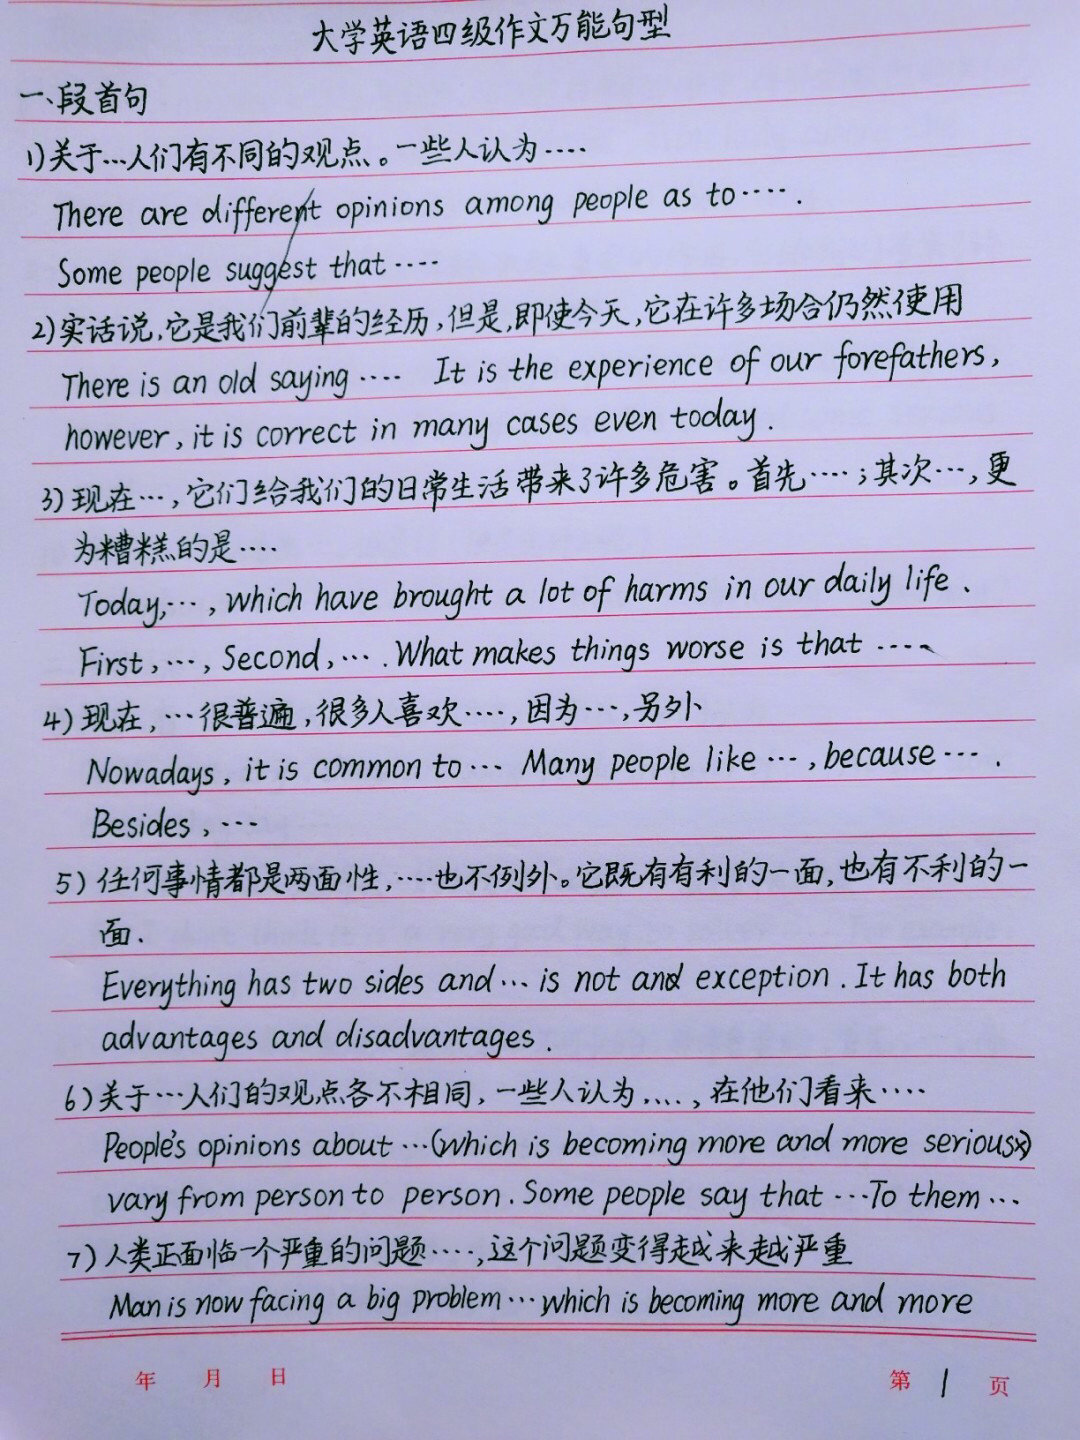 大学英语四级作文万能句型
一、段首句
1)关于…人们有不同的观点。一些人认为····
There are different opinions among people as to····.
Some people suggest that····
2)实话说,它是我们前辈的经历,但是,即使今天,它在许多场合仍然使用
There is an old saying···· It is the experience of our forefathers,
however, it is correct in many cases even today.
3)现在…,它们给我们的日常生活带来了许多危害。首先····;其次…,更
为糟糕的是····
Today,…, which have brought a lot of harms in our daily life.
First,…, Second,…. What makes things worse is that ····
4)现在,…很普遍,很多人喜欢····,因为…,另外
Nowadays, it is common to… Many people like…, because….
Besides,…
5)任何事情都是两面性,····也不例外。它既有有利的一面,也有不利的一
面.
Everything has two sides and… is not and exception. It has both
advantages and disadvantages.
6)关于…人们的观点各不相同,一些人认为....,在他们看来····
People's opinions about…(which is becoming more and more serious)
vary from person to person. Some people say that…To them…
7)人类正面临一个严重的问题····,这个问题变得越来越严重
Man is now facing a big problem… which is becoming more and more
年 月 日 第 1 页